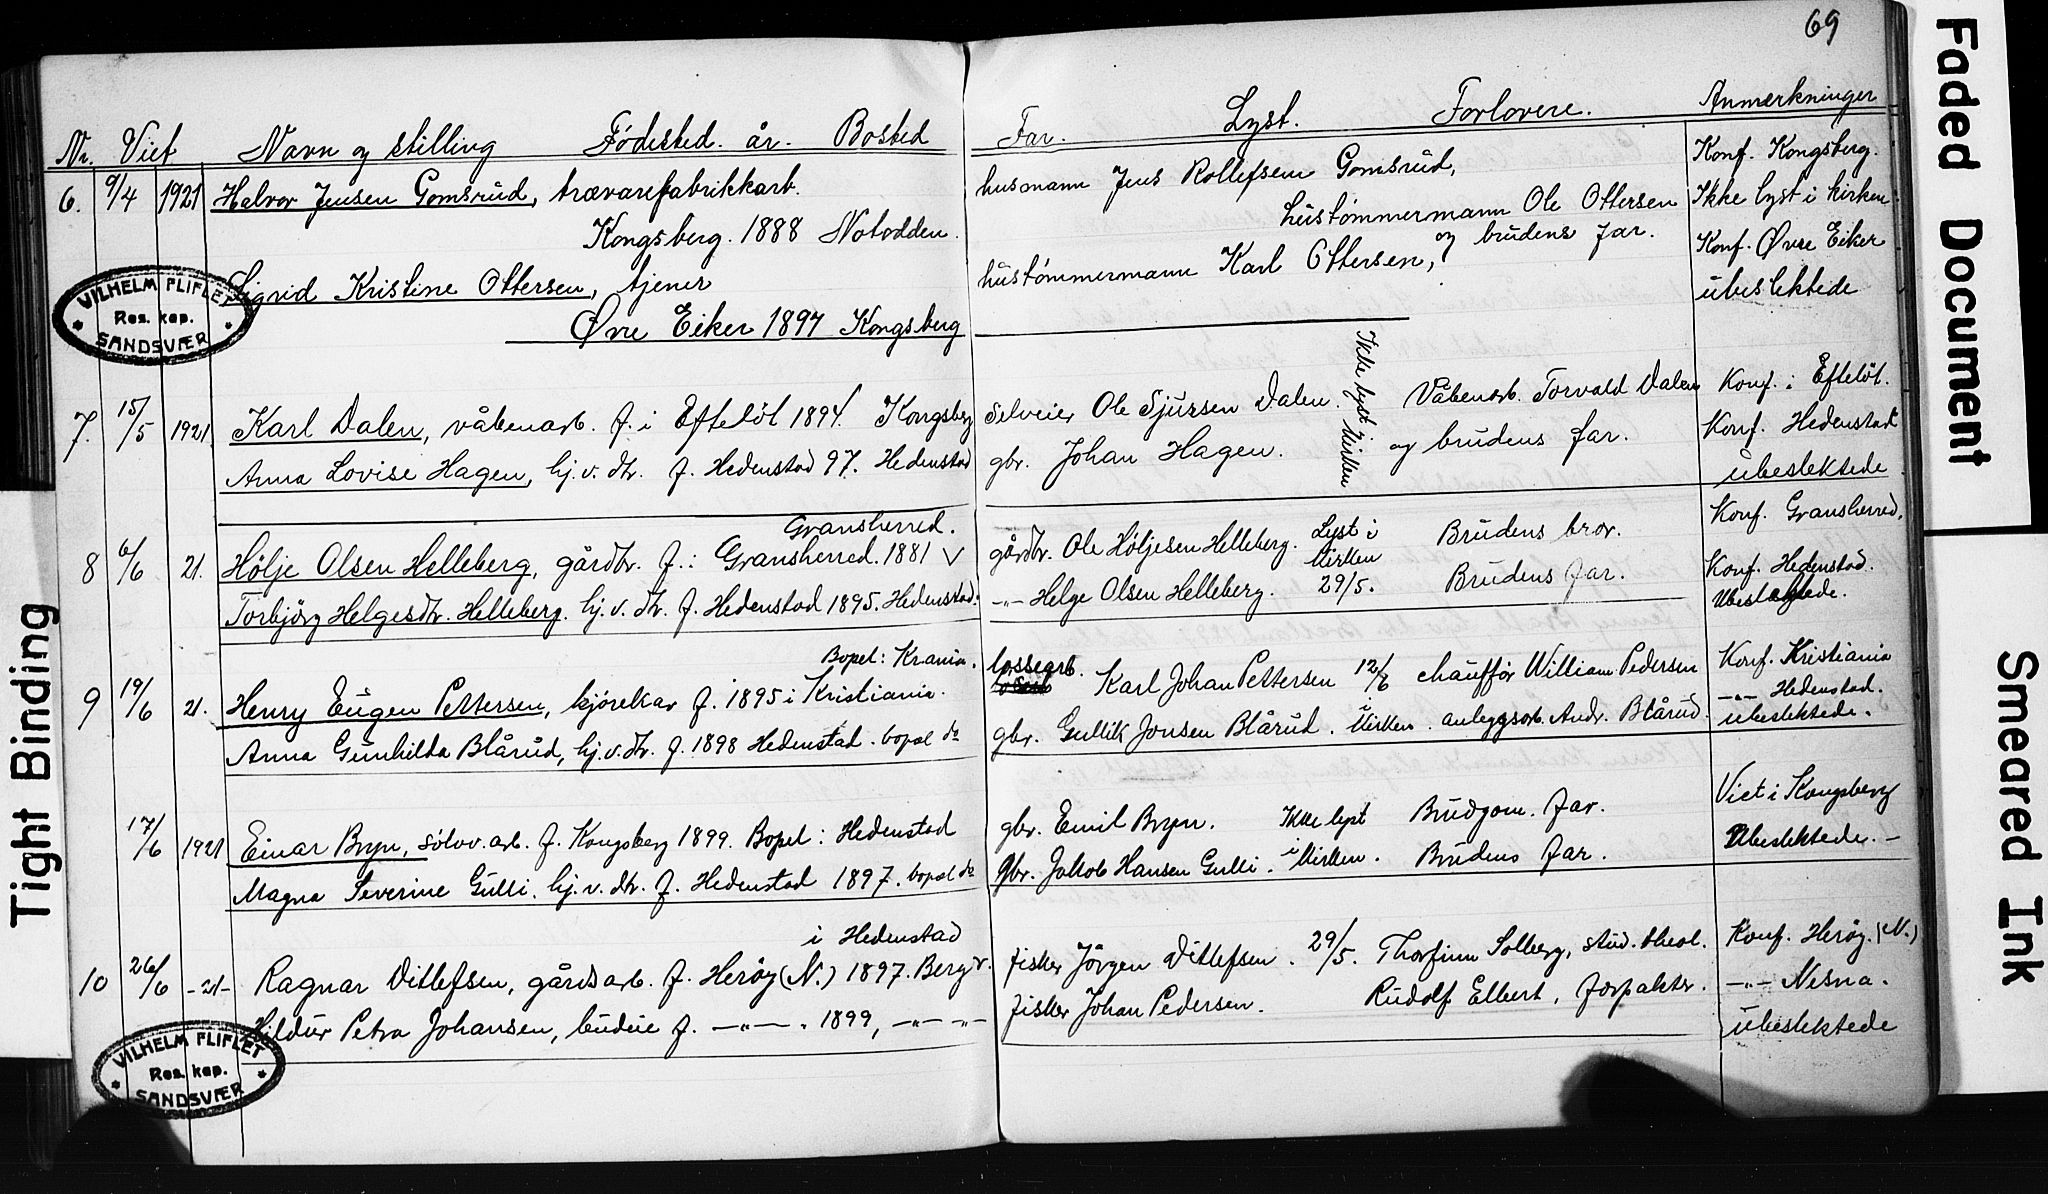 69
Nr. Viet Navn og stilling Fødested. år. Bosted Far. Lyst. Forlovere. Anmerkninger
6. 9/4 1921 Halvor Jensen Gomsrud, trævarefabrikkarb. husmann Jens Rollefsen Gomsrud, Konf. Kongsberg.
Kongsberg. 1888 Notodden. hustømmermann Ole Ottersen Ikke lyst i kirken.
Sigrid Kristine Ottersen, tjener hustømmermann Karl Ottersen, og brudens far. Konf. Øvre Eiker
Øvre Eiker 1897 Kongsberg ubeslektede
VILHELM FLIFLET
Res. kap.
SANDSVÆR
7. 15/5 1921 Karl Dalen, våbenarb. f. i Efteløt 1894. Kongsberg Selveier Ole Sjursen Dalen. Ikke lyst i kirken Våbenarb. Torvald Dalen Konf. i Efteløt.
Anna Lovise Hagen, hj. v. dtr. f. Hedenstad 97. Hedenstad gbr. Johan Hagen. og brudens far. Konf. Hedenstad
ubeslektede
Gransherred. Konf. Gransherred.
8 6/6 21. Hølje Olsen Helleberg, gårdbr. f. : Gransherred. 1881 gårdbr. Ole Høljesen Helleberg. Lyst i kirken Brudens bror.
Torbjörg Helgesdtr. Helleberg. hj. v. dtr. f. Hedenstad 1895. Hedenstad. -"- Helge Olsen Helleberg. 29/5. Brudens far. Konf. Hedenstad.
Ubeslektede.
Bopel: Krania.
9 19/6 21. Henry Eugen Pettersen, kjørekar f. 1895 i Kristiania. lossearb. Karl Johan Pettersen 12/6 chauffør William Pedersen Konf. Kristiania
Anna Gunhilda Blårud, hj. v. dtr. f. 1898 Hedenstad. bopæl do gbr. Gullik Jonsen Blårud. i kirken. anleggsarb. Andr. Blårud. -"- Hedenstad.
ubeslektede.
17/6 1921 Einar Bryn, sølvv. arb. f. Kongsberg 1899. Bopel: Hedenstad gbr. Emil Bryn. Ikke lyst Brudgom. far. Viet i Kongsberg
Magna Severine Gulli. hj. v. dtr. f. Hedenstad 1897. bopæl do Gbr. Jakob Hansen Gulli. i kirken. Brudens far. Ubeslektede. -
i Hedenstad
10 26/6 -21- Ragnar Ditlefsen, gårdsarb. f. Herøy (N.) 1897. Berg v. fisker Jörgen Ditlefsen. 29/5. Thorfinn Solberg, stud. theol. Konf. Herøy. (N.)
Hildur Petra Johansen, budeie f. -"- . 1899, -"- -"- fisker Johan Pedersen. Rudolf Elbert, forpakter. -"- Nesna.
ubeslektede
VILHELM FLIFLET
Res. kap.
SANDSVÆR
Tight Binding
Faded Document
Smeared Ink